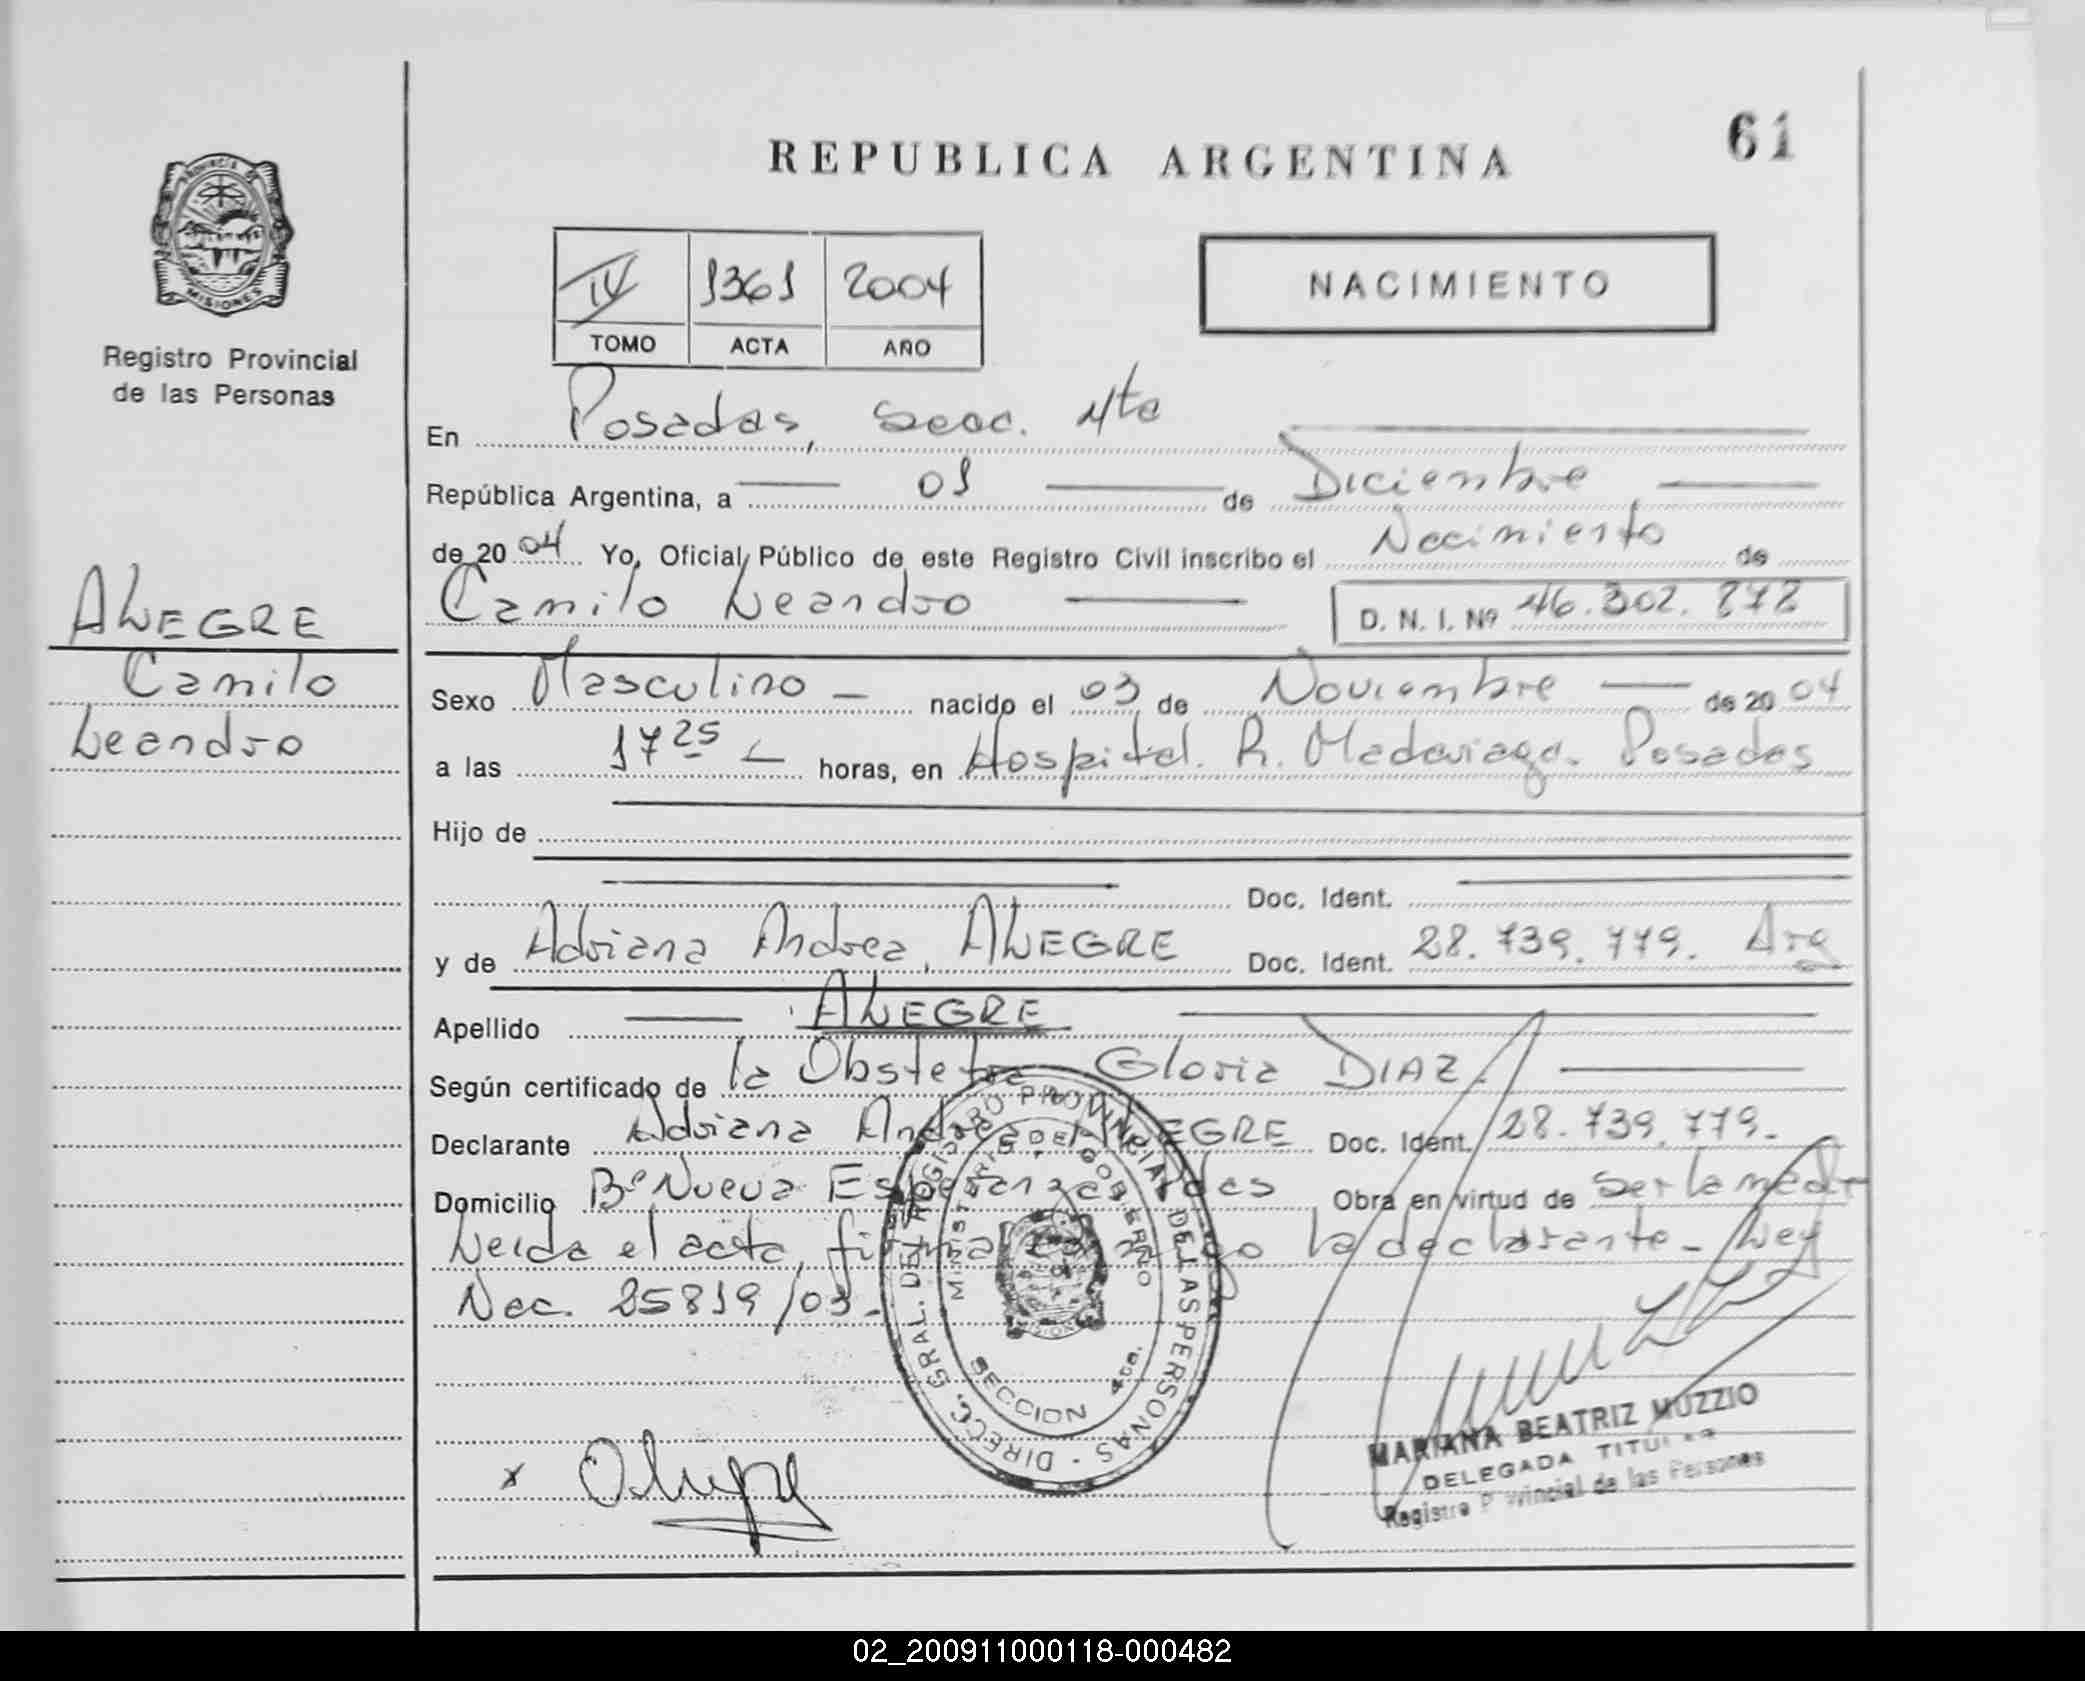 61
REPUBLICA ARGENTINA
PROVINCIA DE
MISIONES
Registro Provincial
de las Personas
IV 1361 2004
TOMO ACTA AÑO
NACIMIENTO
En Posadas, Secc. 4ta
República Argentina, a 01 de Diciembre
de 2004 Yo, Oficial Público de este Registro Civil inscribo el Nacimiento de
Camilo Leandro D. N. I. Nº 46.302.872
ALEGRE
Camilo
Leandro
Sexo Masculino nacido el 03 de Noviembre de 2004
a las 17 25 horas, en Hospital R. Madariaga. Posadas
Hijo de
Doc. Ident.
y de Adriana Andrea, ALEGRE Doc. Ident. 28.739.779. Arg
Apellido ALEGRE
Según certificado de la Obstetra Gloria DIAZ.
Declarante Adriana Andrea ALEGRE Doc. Ident. 28.739.779.
Domicilio Bº Nueva Esperanza Pdas Obra en virtud de ser la madre
Leida el acta, firma conmigo la declarante - Ley
Nac. 25819/03.
DIRECC. GRAL. DEL REGISTRO PROVINCIAL DE LAS PERSONAS
MINISTERIO DE GOBIERNO
SECCION 4ta.
x
MARIANA BEATRIZ MUZZIO
DELEGADA TITULAR
Registro Provincial de las Personas
02_200911000118-000482